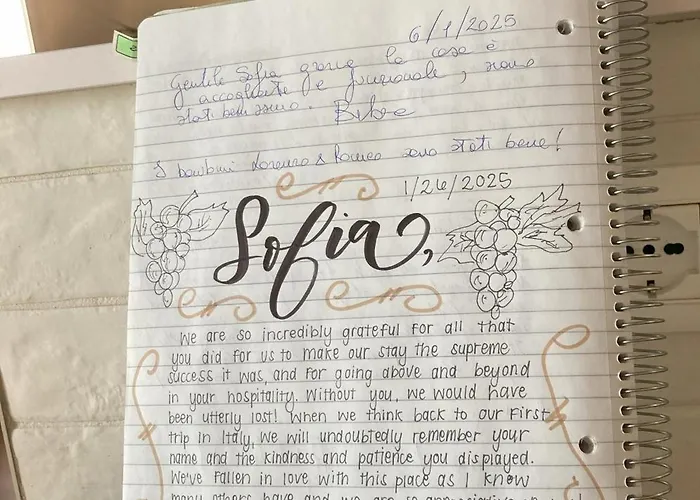 6/1/2025
Gentile Sofia grazie la casa è
accogliente e funzionale, siamo
stati benissimo.
I bambini Lorenzo & Romeo sono stati bene!
1/26/2025
Sofia,
We are so incredibly grateful for all that
you did for us to make our stay the supreme
success it was, and for going above and beyond
in your hospitality. Without you, we would have
been utterly lost! When we think back to our First
trip in Italy, we will undoubtedly remember your
name and the kindness and patience you displayed.
We've fallen in love with this place as I know
many others have and we are so appreciative